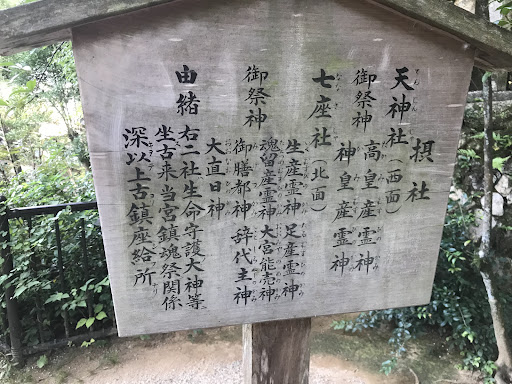 摂社
天神社(西面)
御祭神 高皇産霊神
神皇産霊神
七座社(北面)
御祭神 生産霊神 足産霊神
魂留産霊神 大宮能売神
御膳都神 辞代主神
大直日神
由緒 右二社生命守護大神等
坐古来当宮鎮魂祭関係
深以上古鎮座給所